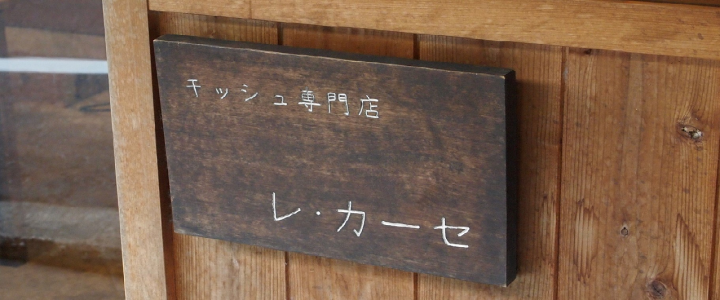 キッシュ専門店
レ・カーセ